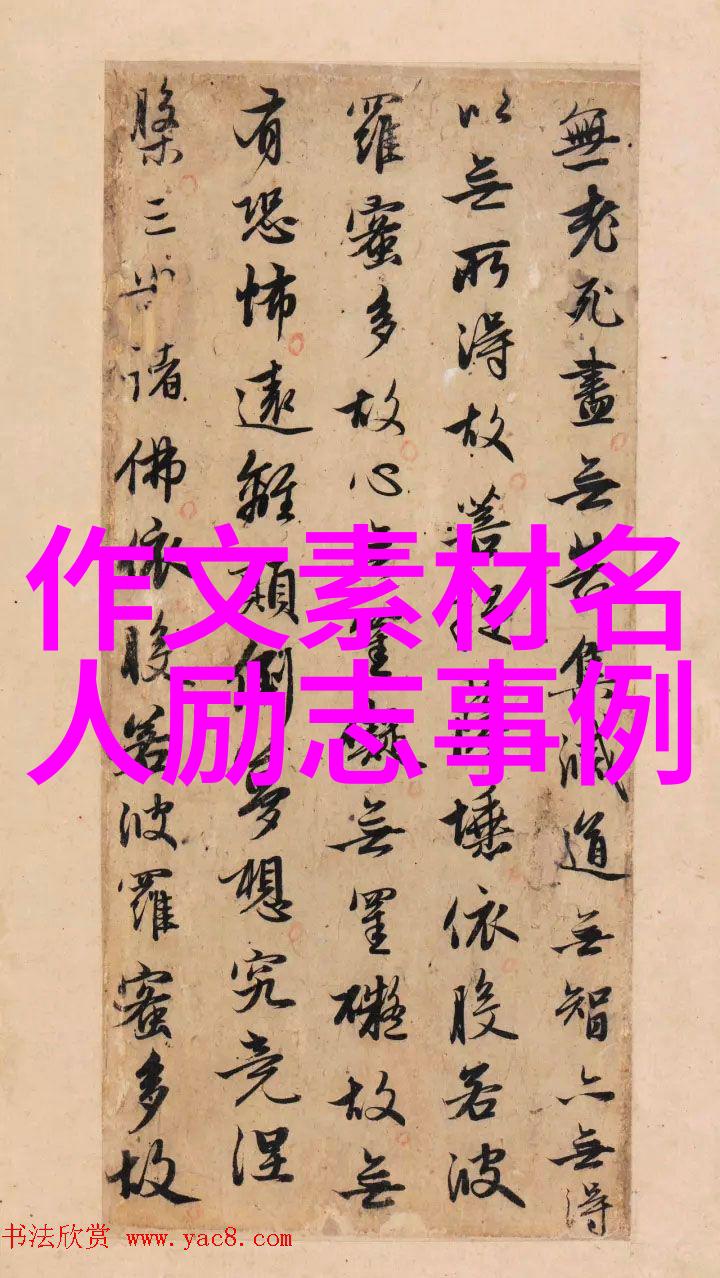 無老死盡无苦集滅道无智亦无得
以无所得故菩提薩埵依般若波
羅蜜多故心无罣礙无罣礙故无
有恐怖遠離顛倒夢想究竟涅
槃三世諸佛依般若波羅蜜多故
作文素材名
人励志事例
书法欣赏 www.yac8.com